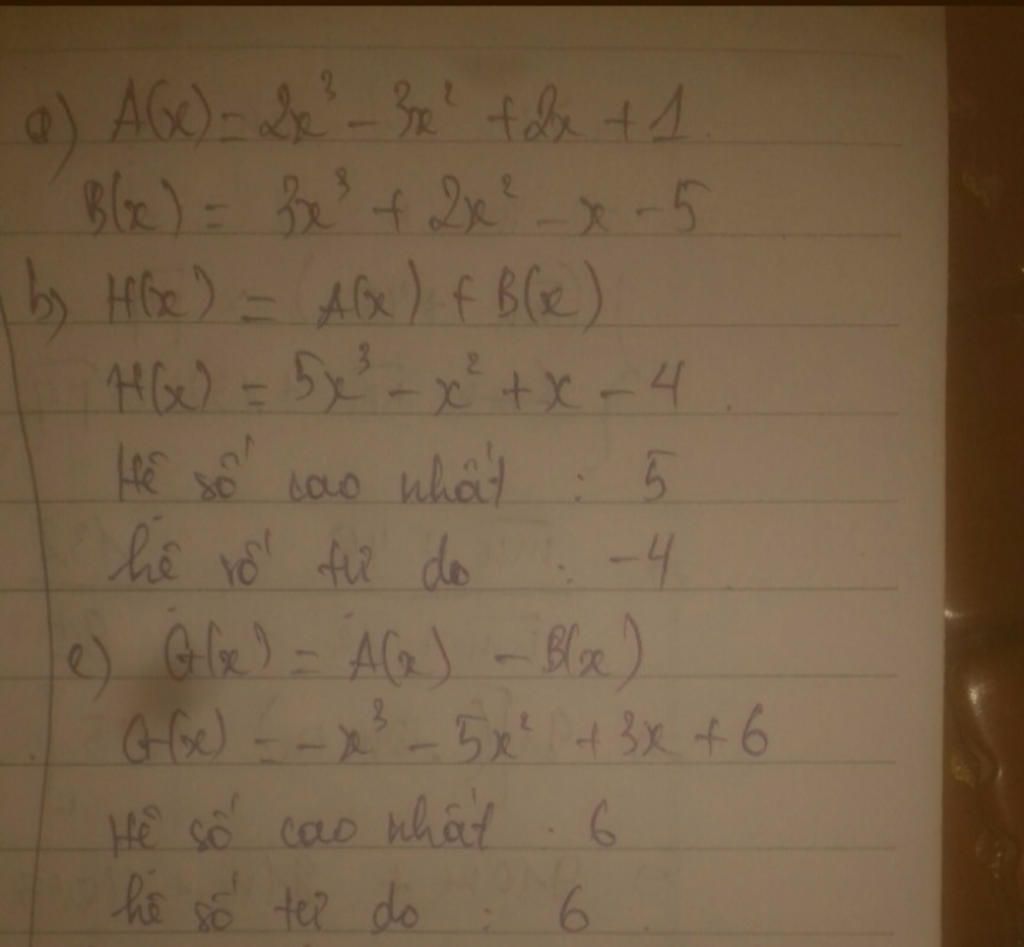 a) A(x) = 2x³ - 3x² + 2x + 1
B(x) = 3x³ + 2x² - x - 5
b) H(x) = A(x) + B(x)
H(x) = 5x³ - x² + x - 4
Hệ số cao nhất : 5
hệ số tự do : -4
c) G(x) = A(x) - B(x)
G(x) = -x³ - 5x² + 3x + 6
Hệ số cao nhất : 6
hệ số tự do : 6